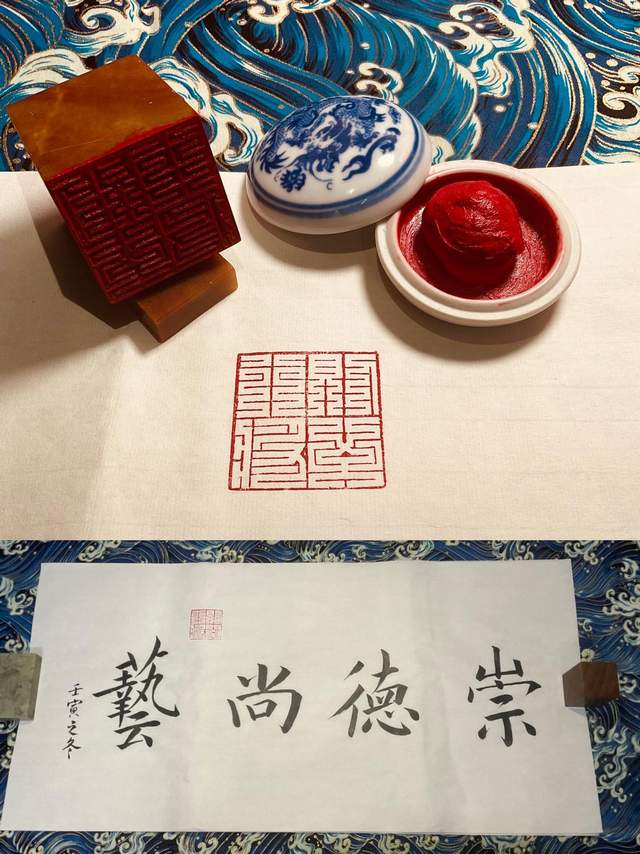 崇德尚藝
壬寅之冬